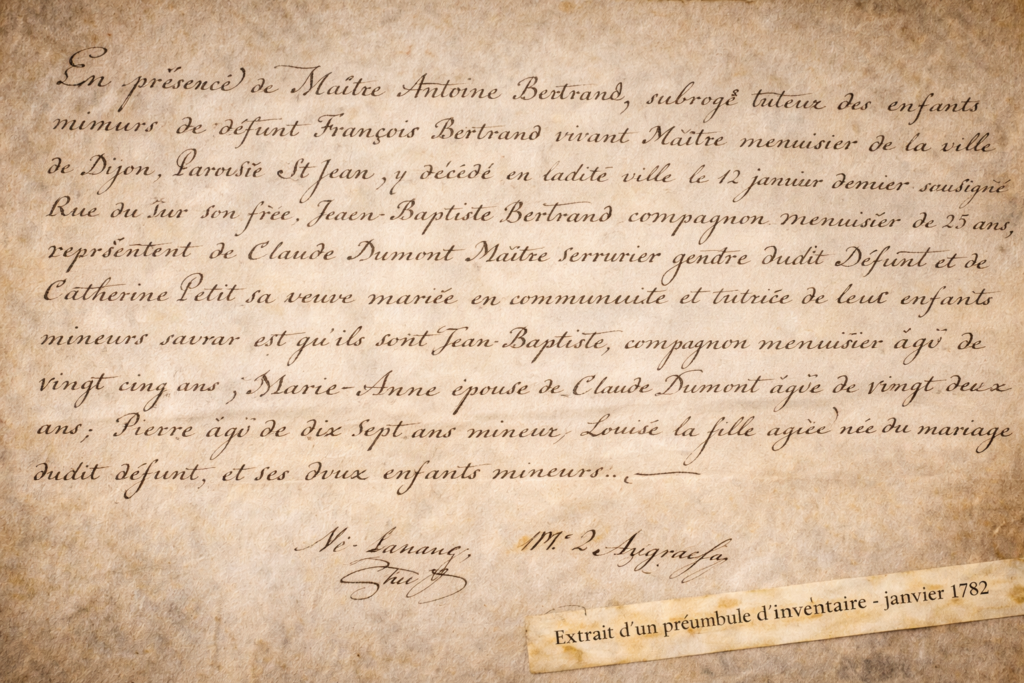 En présencé de Maître Antoine Bertrand, subrogé tuteur des enfants
mimurs de défunt François Bertrand vivant Maître menuisier de la ville
de Dijon, Paroisïe St Jean, y décédé en ladité ville le 12 januier demier sousigné
Rue du Sur son frèe. Jeaen-Baptiste Bertrand compagnon menuisier de 25 ans,
reprśentent de Claude Dumont Maître serrurier gendre dudit Défunt et de
Catherine Petit sa veuve mariée en communuite et tutrice de leuc enfants
mineurs savrar est qu'ils soñt Jean-Baptiste, compagnon menuisier âgü de
vingt cinq ans ; Marie-Anne épouse de Claude Dumont âgüe de vingt deux
ans; Pierre âgü de dix Sept ans mineur, Louisé la fille agièe née du mariage
dudit défunt, et ses dvux enfants mineurs..
Extrait d'un préumbule d'inventaire - janvier 1782